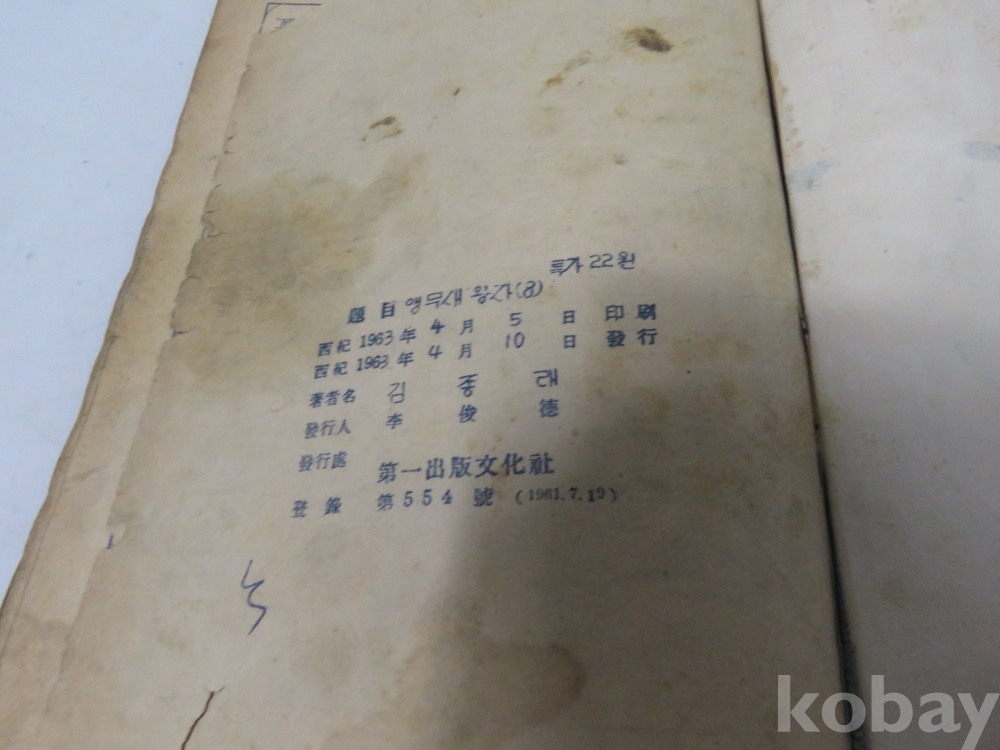 특가 22원
題目 앵무새 왕자(8)
西紀 1963 年 4 月 5 日 印刷
西紀 1963 年 4 月 10 日 發行
著者名 김종래
發行人 李俊德
發行處 第一出版文化社
登錄 第554號 (1961.7.19)
kobay